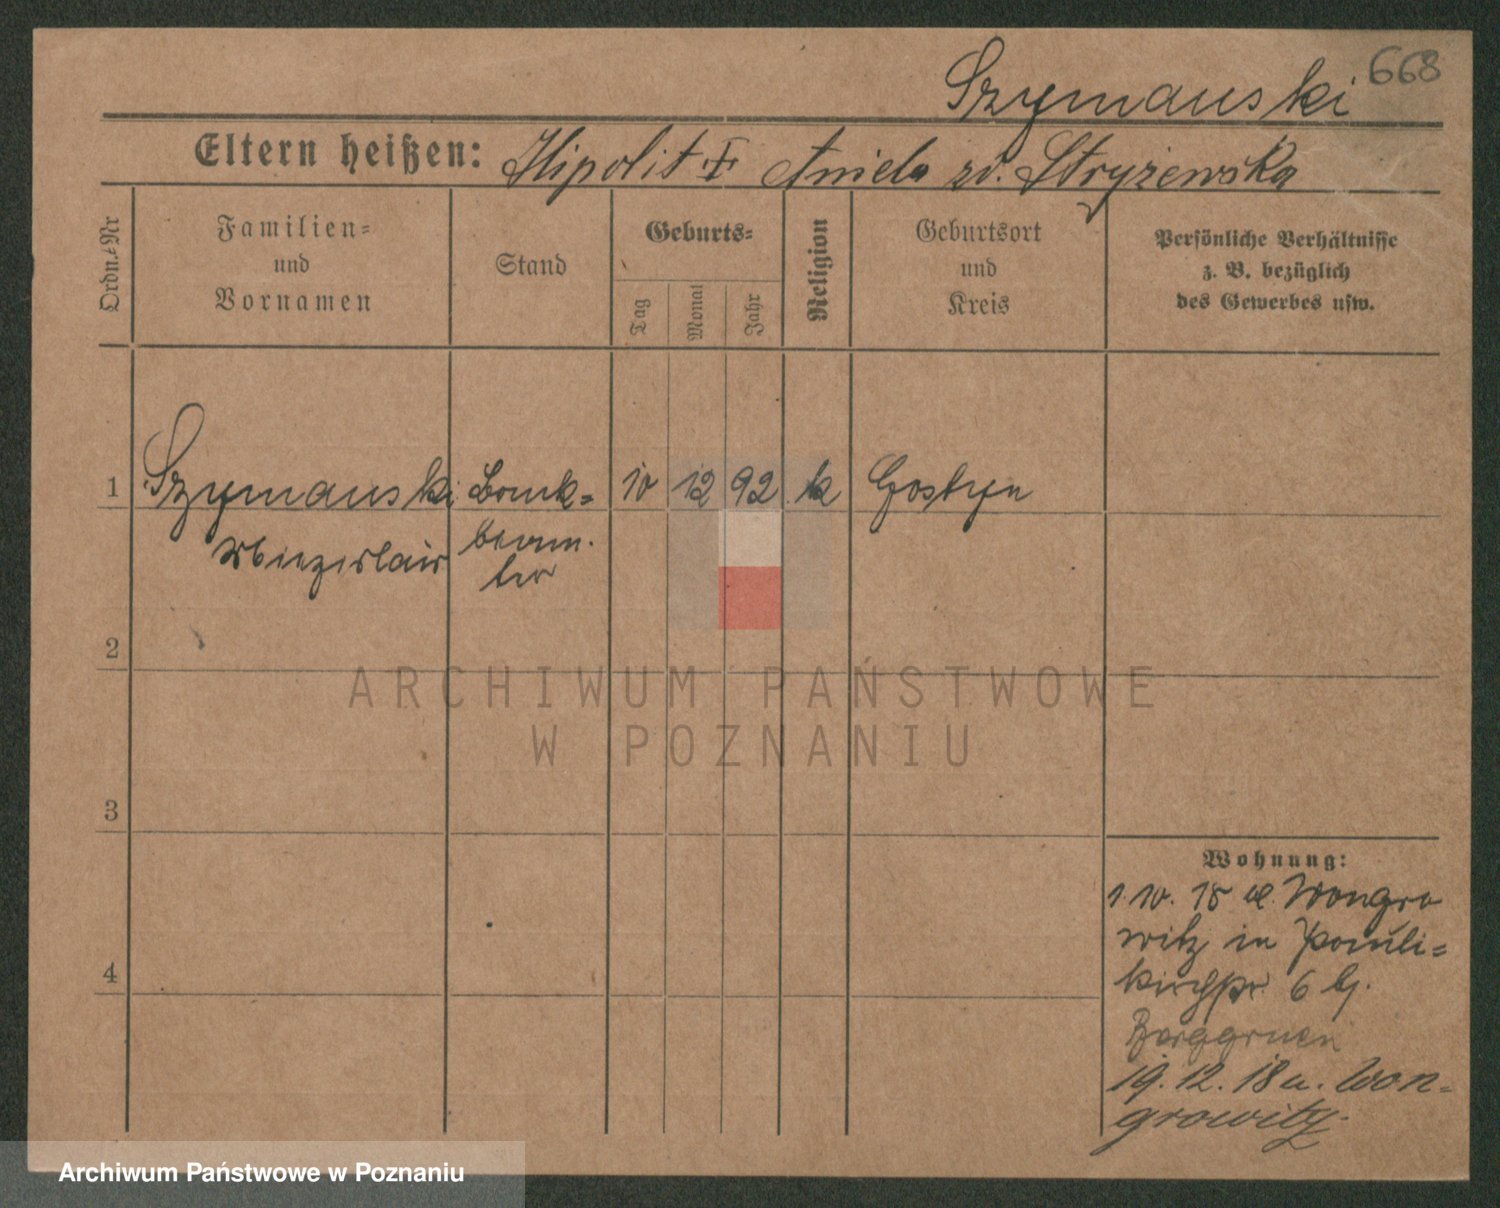 Szymanski 668
Eltern heißen: Hipolit † Aniela zd. Stryżewska
Ordn.=Nr
Familien=
und
Vornamen
Stand
Geburts=
Tag
Monat
Jahr
Religion
Geburtsort
und
Kreis
Persönliche Verhältnisse
z. B. bezüglich
des Gewerbes usw.
1 Szymanski Bank= 10 12 92 k Gostyn
beam.
ter
2
ARCHIWUM PAŃSTWOWE
W POZNANIU
3
4
Wohnung:
1.10. 18 a. Wongro
witz in Pauli=
kirchstr. 6 b.
Berggruen
19.12.18 a. Won=
growitz.
Archiwum Państwowe w Poznaniu